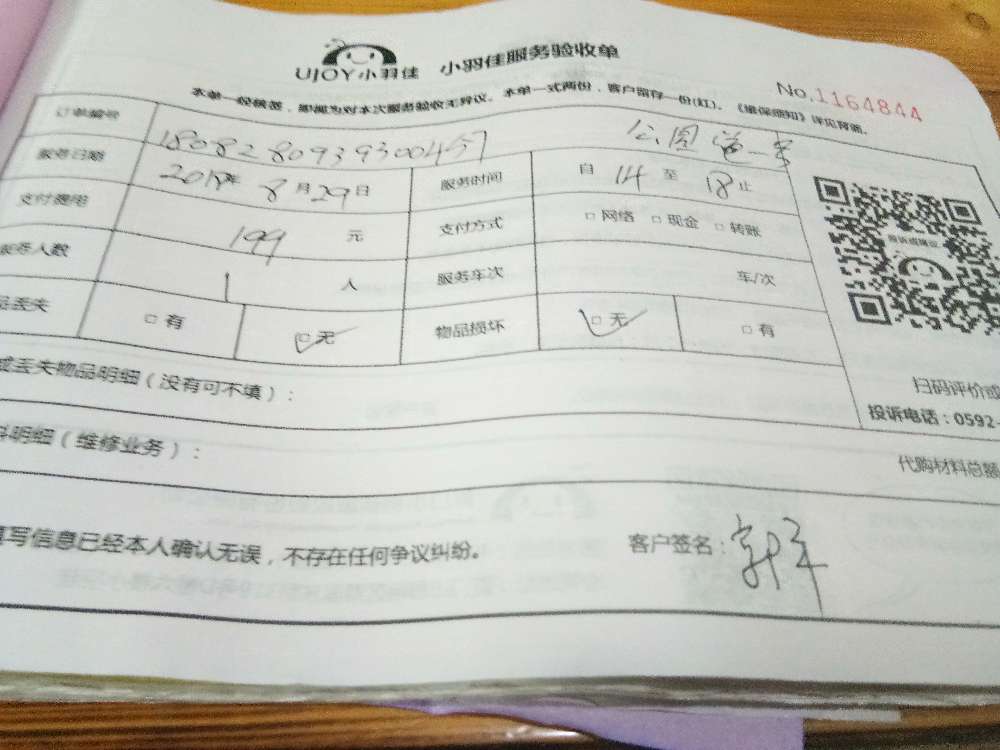 UJOY小羽佳 小羽佳服务验收单
No.1164844
本单一经核签，即视为对本次服务验收无异议。本单一式两份，客户留存一份(红)。《维保须知》详见背面。
订单编号 1808280939300457
服务日期 2018年 8月29日 服务时间 自 14 至 18 止
支付费用 199 元 支付方式 □ 网络 □ 现金 □ 转账
服务人数 1 人 服务车次 车/次
品丢失 □ 有 □ 无 物品损坏 □ 无 □ 有
投诉或建议
扫码评价或
投诉电话：0592-
或丢失物品明细（没有可不填）：
料明细（维修业务）： 代购材料总额
填写信息已经本人确认无误，不存在任何争议纠纷。 客户签名：